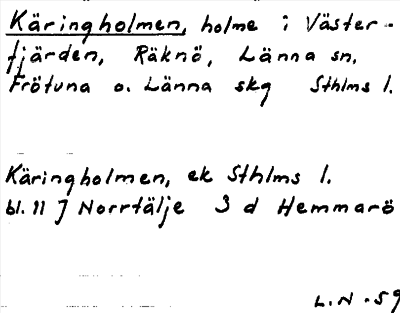 Käringholmen, holme i Väster-
fjärden, Räknö, Länna sn,
Frötuna o. Länna skg Sthlms l.
Käringholmen, ek Sthlms l.
bl. 11 J Norrtälje 3 d Hemmarö
L.N. -59